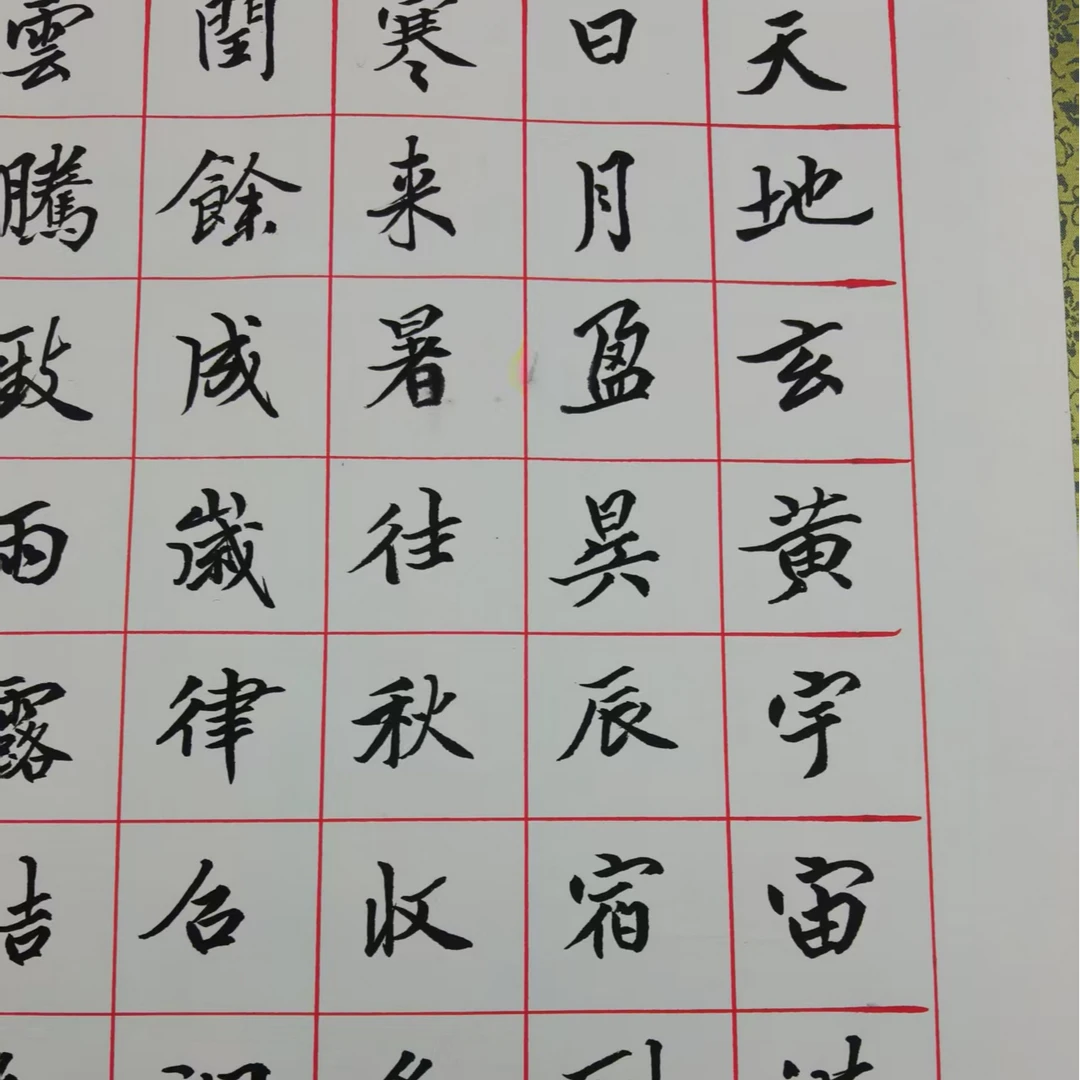 天地玄黄宇宙
日月盈昃辰宿
寒来暑往秋收
閏餘成歲律召
雲騰致雨露